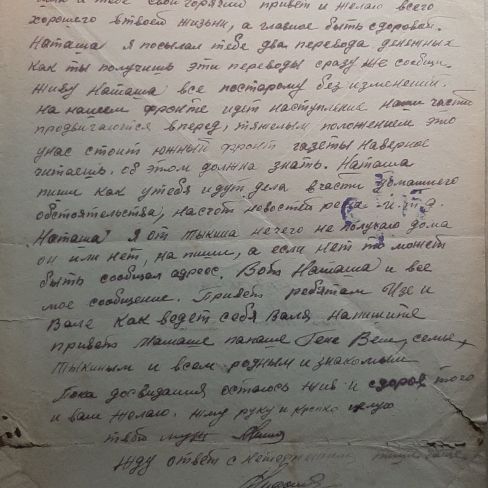 и тебе свой горячий привет и желаю всего
хорошего втвоей жизни, а главное быть здоровой.
Наташа я посылал тебе два перевода денежных
как ты получишь эти переводы сразу же сообщи.
живу Наташа все постарому без изменений.
на нашем фронте идет наступление наши части
продвигаются вперед, тяжелым положением это
унас стоит южный фронт газеты наверное
читаешь об этом должна знать. Наташа
пиши как утебя идут дела вчасти домашнего
обстоятельства, насчот новостей и т.д.
Наташа я от тыкина нечего не получаю дома
он или нет, на пиши, а если нет то может
быть сообщал адрес. Вот Наташа и все
мое сообщение. Привет ребятам и
Вале как ведет себя Валя, напишите
привет мамаше папаше Гене семье
Тыкиным и всем родным и знакомым
Пока досвидания остаюсь жив и здоров того
и вам желаю. жму руку и крепко целую
тебя муж
жду ответ с нетерпением